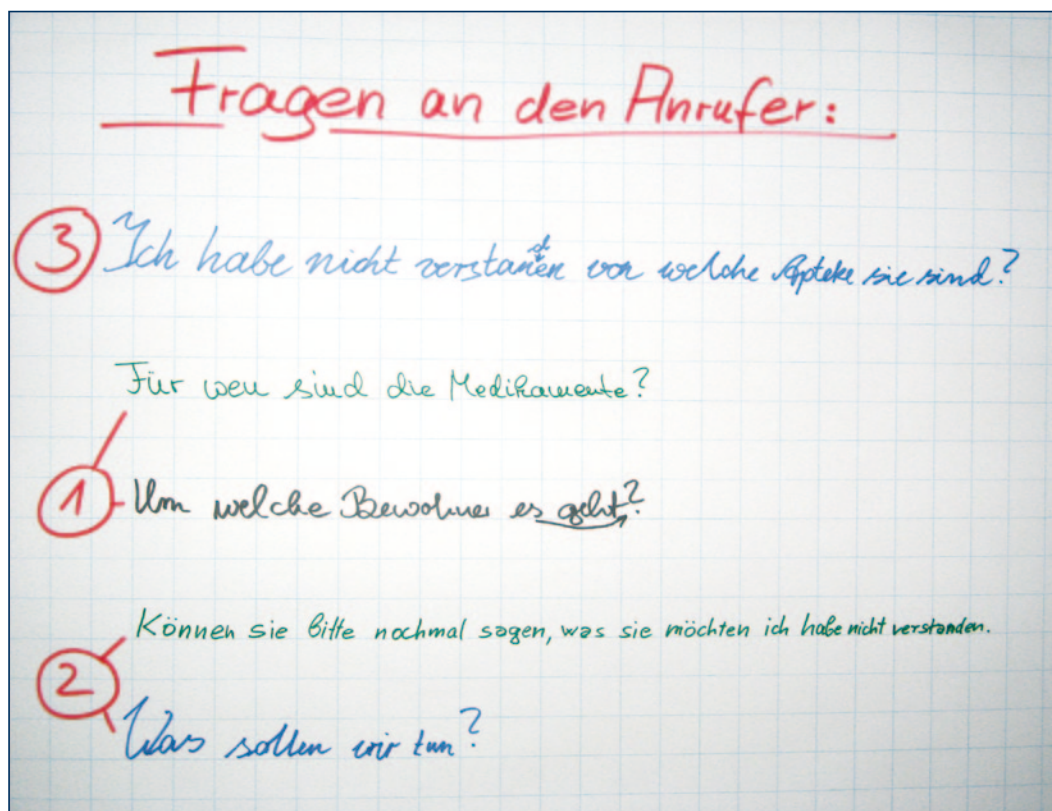 Fragen an den Anrufer:
3 Ich habe nicht verstanden von welche Apteke sie sind?
Für wen sind die Medikamente?
1 Um welche Bewohner es geht?
Können sie bitte nochmal sagen, was sie möchten ich habe nicht verstanden.
2
Was sollen wir tun?